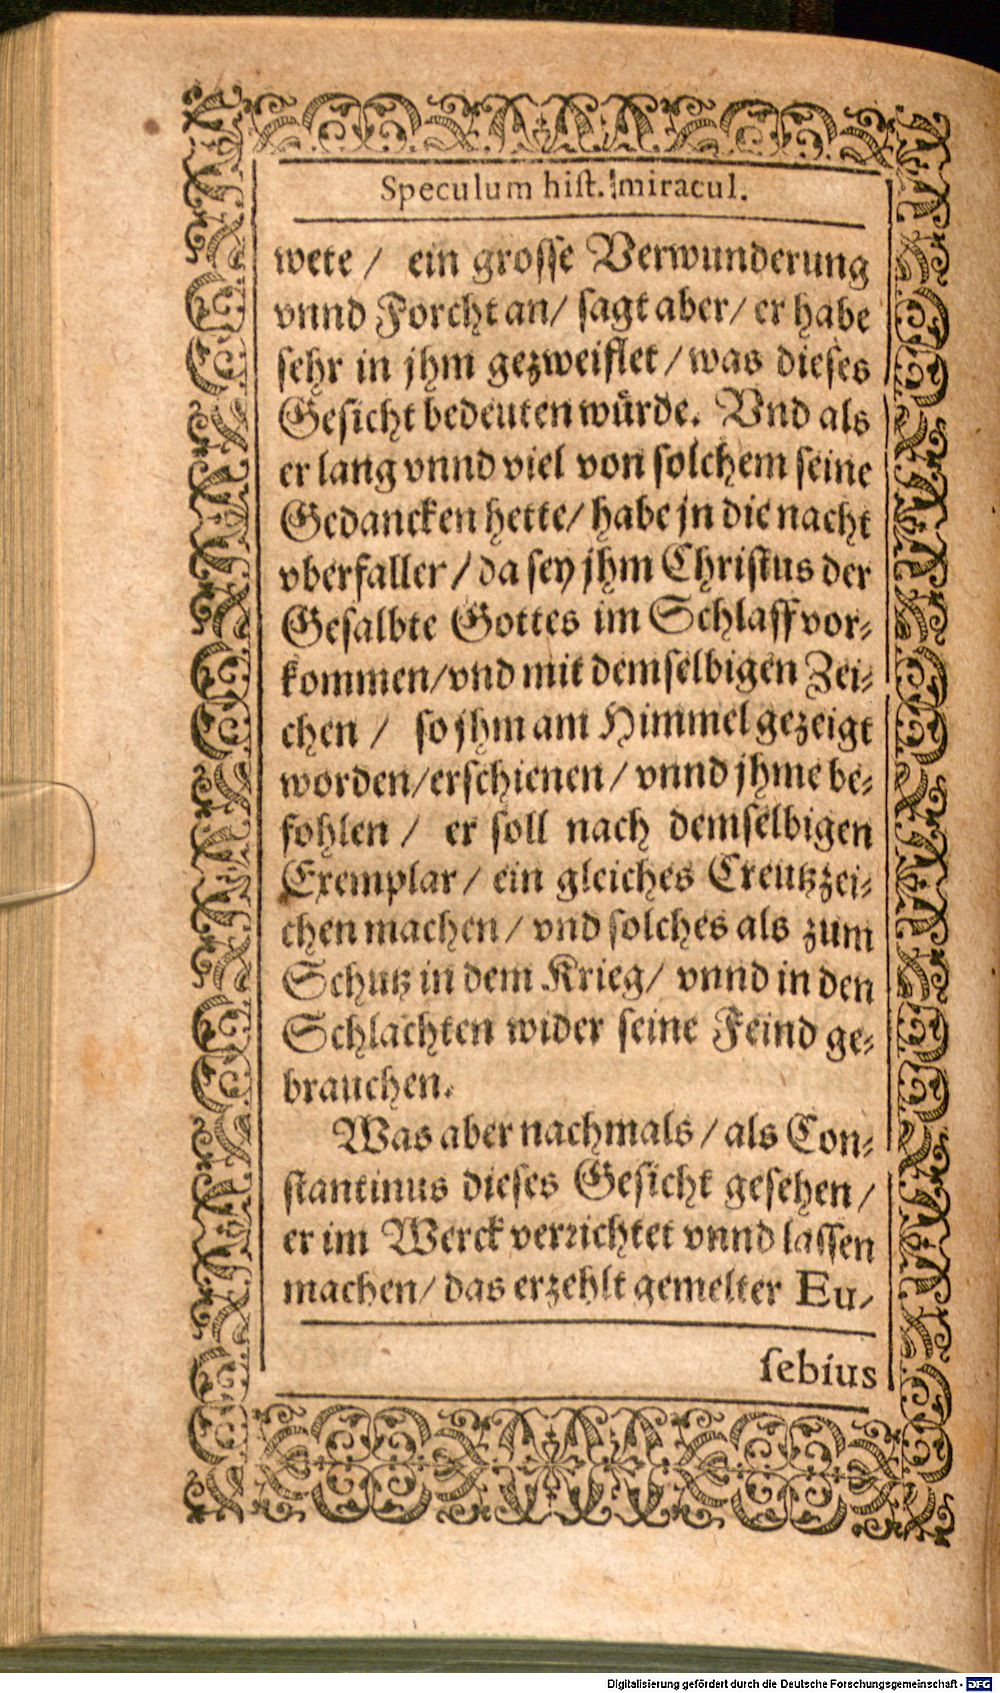 Speculum hiſt. miracul.
wete / ein groſſe Verwunderung
vnnd Forcht an / ſagt aber / er habe
ſehr in jhm gezweiflet / was dieſes
Geſicht bedeuten wuͤrde. Vnd als
er lang vnnd viel von ſolchem ſeine
Gedancken hette / habe jn die nacht
vberfaller / da ſey jhm Chriſtus der
Geſalbte Gottes im Schlaff vor⸗
kommen / vnd mit demſelbigen Zei⸗
chen / ſo jhm am Himmel gezeigt
worden / erſchienen / vnnd jhme be⸗
fohlen / er ſoll nach demſelbigen
Exemplar / ein gleiches Creutzzei⸗
chen machen / vnd ſolches als zum
Schutz in dem Krieg / vnnd in den
Schlachten wider ſeine Feind ge⸗
brauchen.
Was aber nachmals / als Con⸗
ſtantinus dieſes Geſicht geſehen /
er im Werck verrichtet vnnd laſſen
machen / das erzehlt gemelter Eu⸗
ſebius
Digitalisierung gefördert durch die Deutsche Forschungsgemeinschaft - DFG